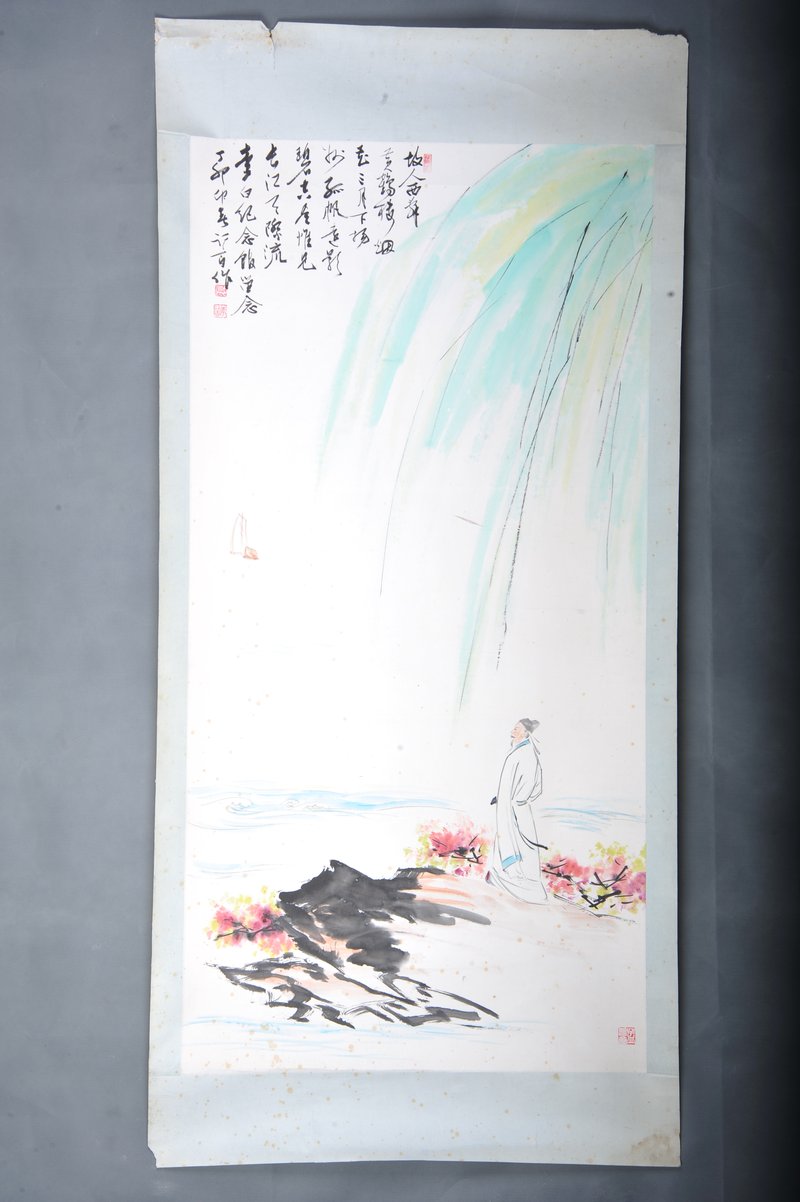 故人西辞
黄鹤楼烟
花三月下扬
州孤帆远影
碧空尽惟见
长江天际流
李白纪念馆留念
丁卯春作